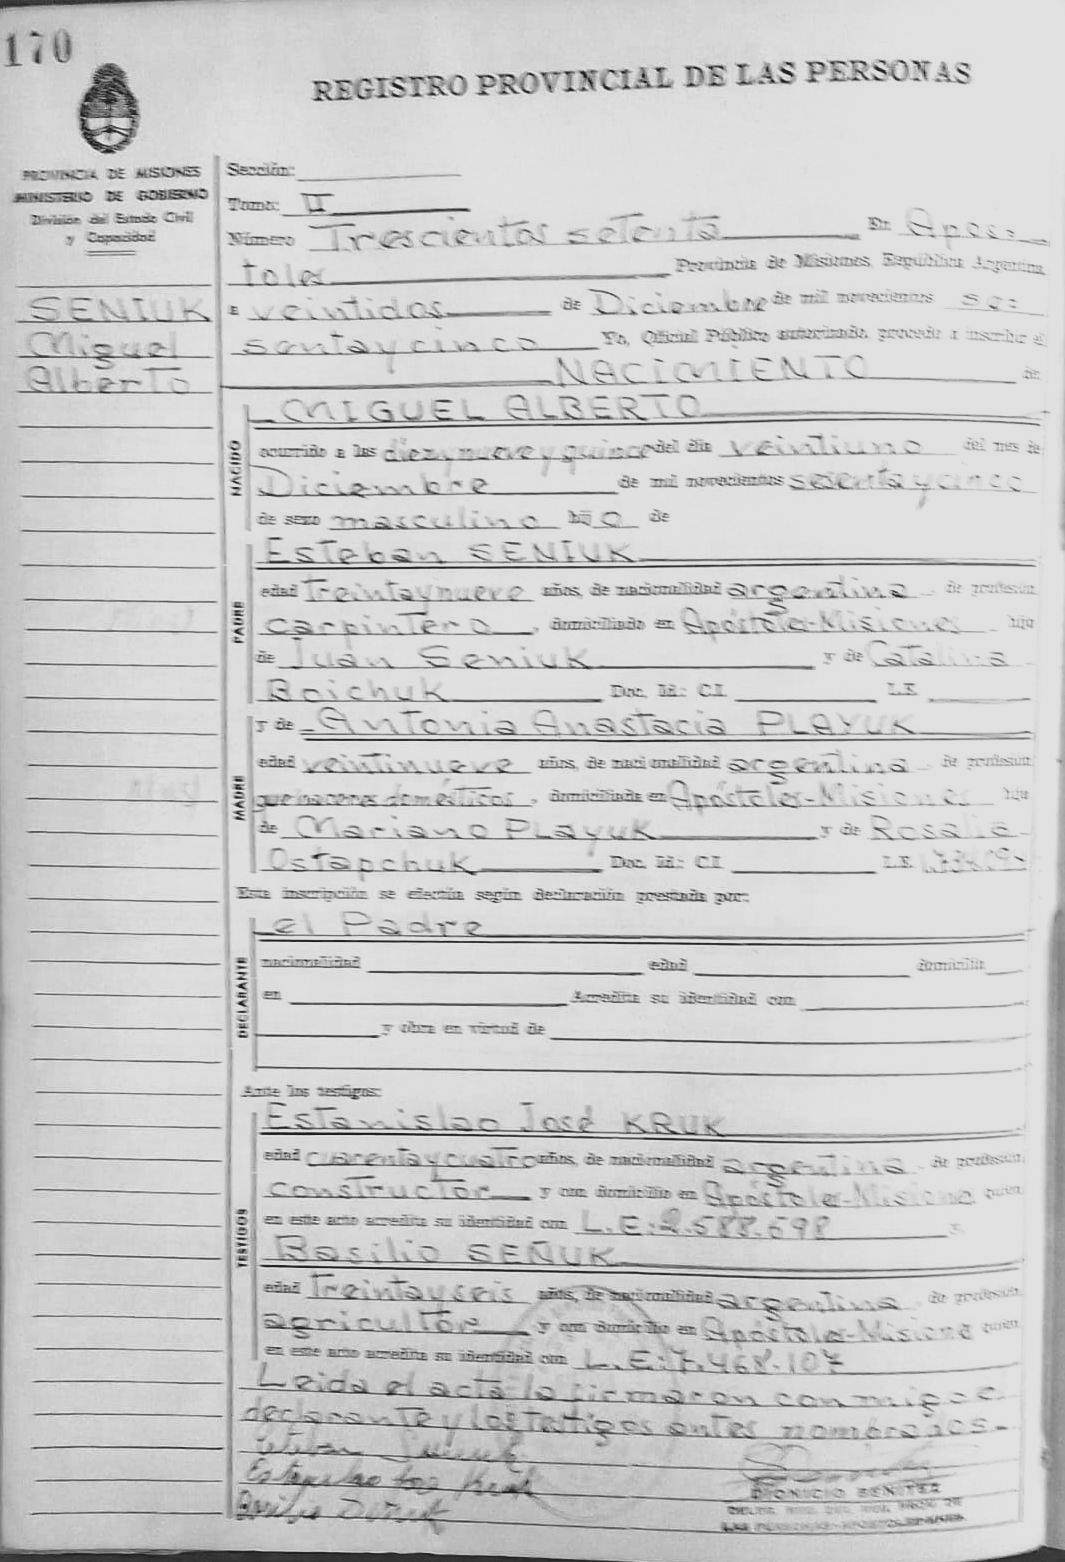 170
REGISTRO PROVINCIAL DE LAS PERSONAS
PROVINCIA DE MISIONES
MINISTERIO DE GOBIERNO
División del Estado Civil
y Capacidad
SENIUK
Miguel
Alberto
Sección:
Tomo: II
Número Trescientos setenta En Após=
toles Provincia de Misiones, República Argentina,
a veintidos de Diciembre de mil novecientos se=
sentaycinco Yo, Oficial Público autorizado, procedo a inscribir el
NACIMIENTO de
NACIDO
MIGUEL ALBERTO
ocurrido a las diezynueve y quince del día veintiuno del mes de
Diciembre de mil novecientos sesentaycinco
de sexo masculino hijo de
PADRE
Esteban SENIUK
edad treintaynueve años, de nacionalidad argentina, de profesión
carpintero, domiciliado en Apóstoles-Misiones hijo
de Juan Seniuk y de Catalina
Boichuk Doc. Id.: C.I. L.E.
MADRE
y de Antonia Anastacia PLAYUK
edad veintinueve años, de nacionalidad argentina, de profesión
quehaceres domésticos, domiciliada en Apóstoles-Misiones hija
de Mariano PLAYUK y de Rosalia
Ostapchuk Doc. Id.: C.I. L.E.
Esta inscripción se efectúa según declaración prestada por:
DECLARANTE
el Padre
nacionalidad edad domicilio
en Acredita su identidad con
y obra en virtud de
Ante los testigos:
TESTIGOS
Estanislao José KRUK
edad cuarentaycuatro años, de nacionalidad argentina, de profesión
constructor y con domicilio en Apóstoles-Misiones quien
en este acto acredita su identidad con L.E:2.588.698 y
Basilio SEÑUK
edad Treintayseis años, de nacionalidad argentina, de profesión
agricultor y con domicilio en Apóstoles-Misiones quien
en este acto acredita su identidad con L.E:7.468.107
Leida el acta la firmaron conmigo e
declarante y los testigos antes nombrados.-
Esteban Seniuk
Estanislao José Kruk
DIONICIO BENITEZ